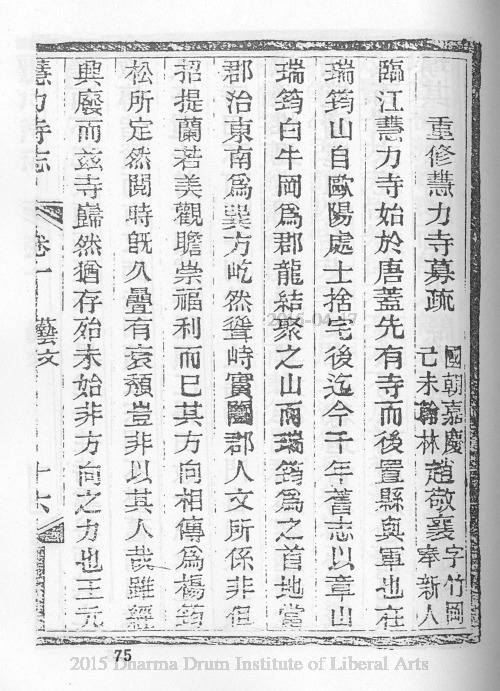 重修慧力寺募疏
國朝嘉慶己未翰林趙敬襄字竹岡奉新人
臨江慧力寺始於唐蓋先有寺而後置縣與軍也在
瑞筠山自歐陽處士捨宅後迄今千年舊志以章山
瑞筠白牛岡爲郡龍結聚之山而瑞筠爲之首地當
郡治東南爲巽方屹然聳峙實闔郡人文所係非但
招提蘭若美觀瞻崇福利而已其方向相傳爲楊筠
松所定然閱時旣久疊有衰頹豈非以其人哉雖經
興廢而茲寺巋然猶存殆未始非方向之力也王元
慧力寺志
卷一
藝文
十六
75
2015 Dharma Drum Institute of Liberal Arts